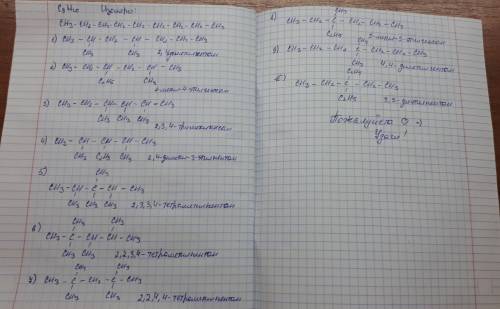 C₉H₂₀ Изомеры:
CH₃-CH₂-CH₂-CH₂-CH₂-CH₂-CH₂-CH₂-CH₃
1) CH₃-CH-CH₂-CH-CH₂-CH₂-CH₃
CH₃ CH₃
2) CH₃-CH₂-CH-CH₂-CH-CH₃
C₂H₅ CH₃
3) CH₃-CH₂-CH-CH-CH-CH₃
CH₃ CH₃ CH₃
2,3,4-триметилгексан
4) CH₃-CH-CH-CH-CH₃
CH₃ C₂H₅ CH₃ 2,4-диметил-3-этилпентан
5) CH₃
CH₃-CH-C-CH-CH₃
CH₃ CH₃ CH₃ 2,3,3,4-тетраметилпентан
6) CH₃ CH₃
CH₃-C-CH-CH-CH₃
CH₃ CH₃ 2,2,3,4-тетраметилпентан
7) CH₃ CH₃
CH₃-C-CH₂-C-CH₃
CH₃ CH₃ 2,2,4,4-тетраметилпентан
CH₃
CH₃-CH₂-C-CH₂-CH₂-CH₃
C₂H₅
CH₃
CH₃-CH₂-CH₂-C-CH₂-CH₂-CH₃
CH₃ 4,4-диметилгептан
C₂H₅
CH₃-CH₂-C-CH₂-CH₃
C₂H₅ 3,3-диэтилпентан
Пожалуйста
Удачи!